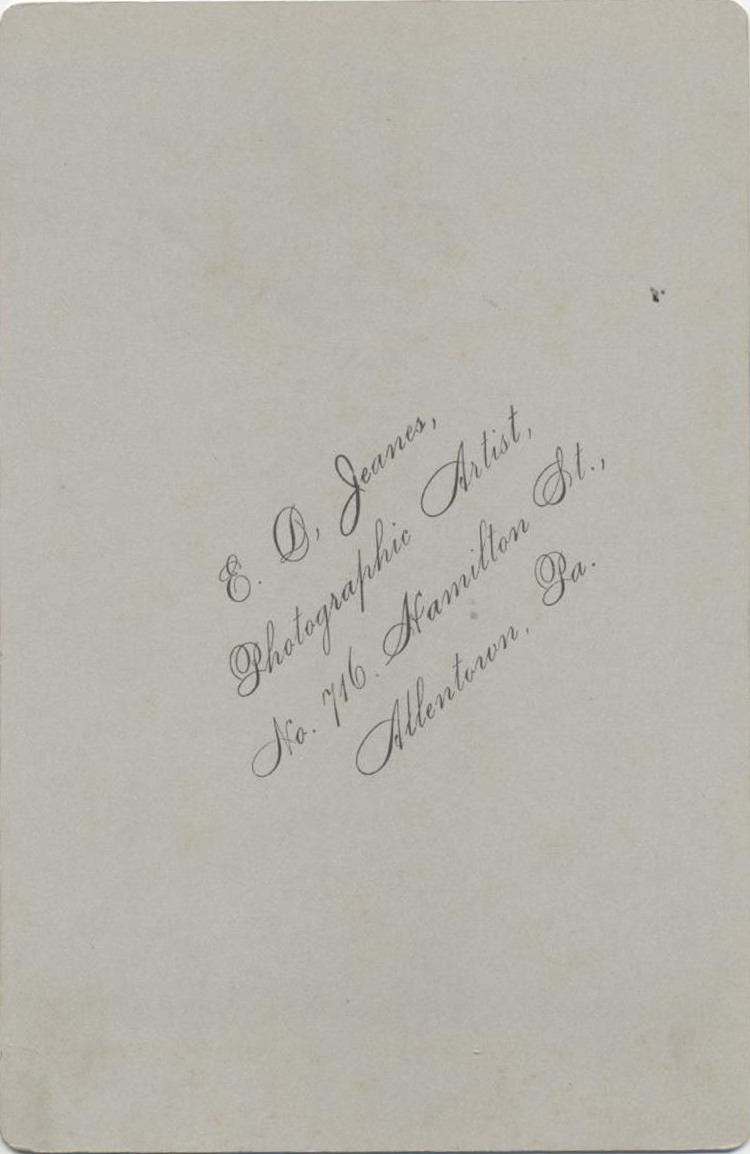 E. D. Jeanes,
Photographic Artist,
No. 716. Hamilton St.,
Allentown, Pa.